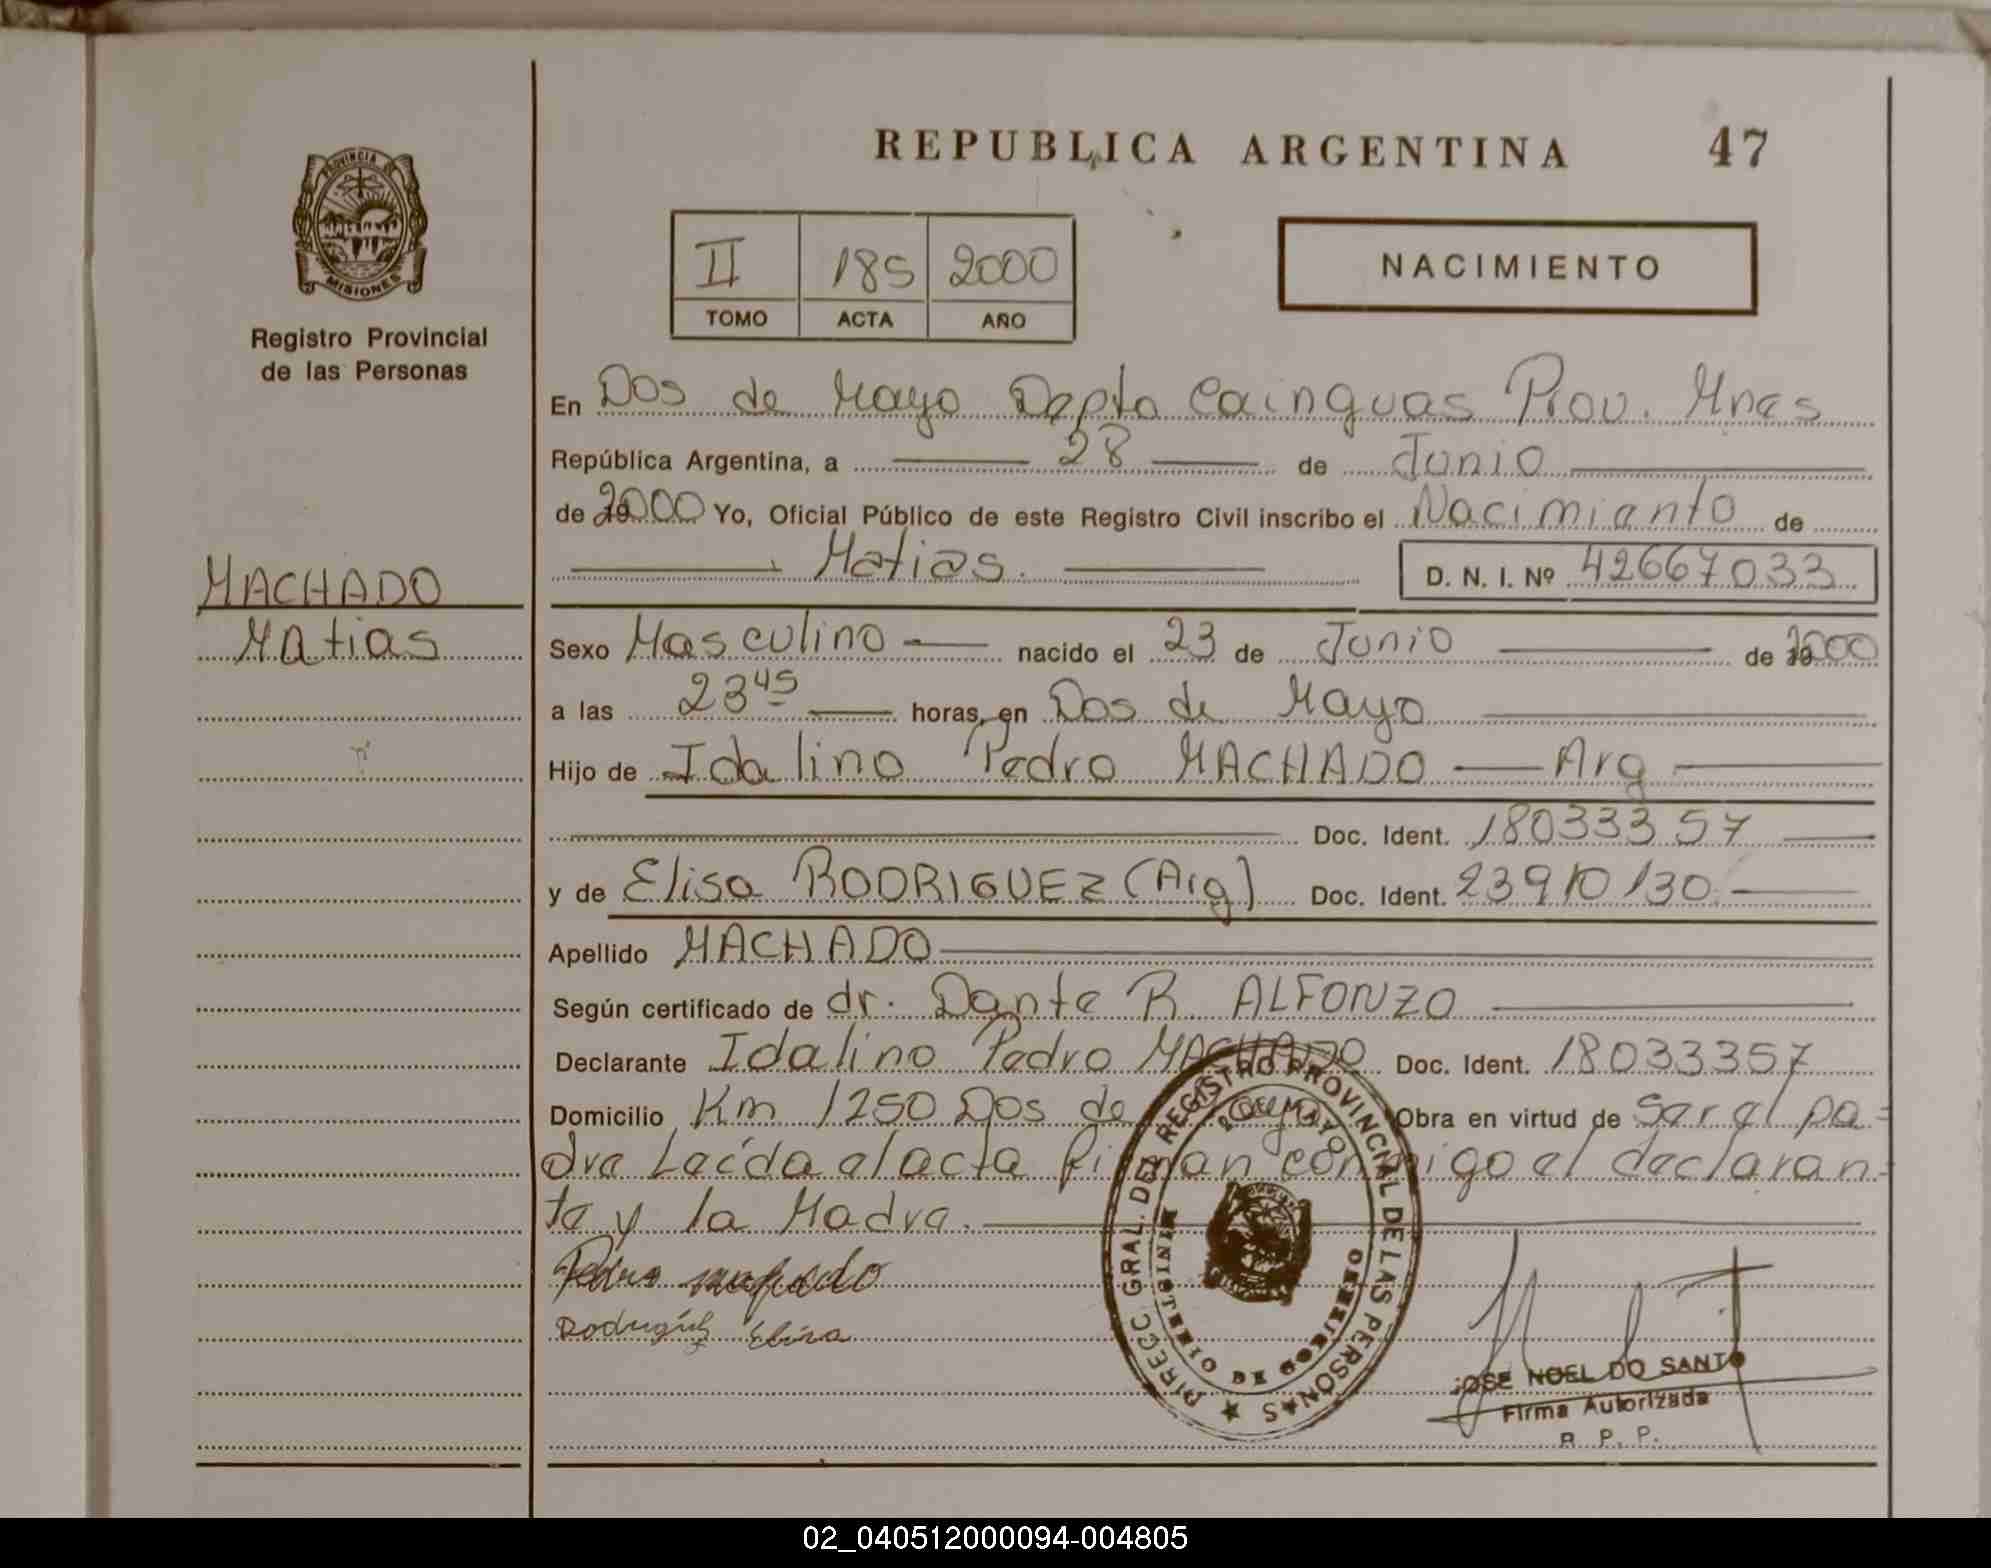 REPUBLICA ARGENTINA 47
PROVINCIA DE
MISIONES
Registro Provincial
de las Personas
II 185 2000
TOMO ACTA AÑO
NACIMIENTO
En Dos de Mayo Depto Cainguas Prov. Mnes
República Argentina, a 28 de Junio
de 2000 Yo, Oficial Público de este Registro Civil inscribo el Nacimiento de
Matias. D. N. I. Nº 42667033
MACHADO
Matias
Sexo Masculino nacido el 23 de Junio de 2000
a las 23 45 horas, en Dos de Mayo
Hijo de Idalino Pedro MACHADO Arg
Doc. Ident. 18033357
y de Elisa RODRIGUEZ (Arg) Doc. Ident. 23910130
Apellido MACHADO
Según certificado de dr. Dante R. ALFONZO
Declarante Idalino Pedro MACHADO Doc. Ident. 18033357
Domicilio Km 1250 Dos de Mayo Obra en virtud de ser el pa=
dre Leída el acta firman conmigo el declaran=
te y la Madre.
Pedro machado
Rodriguez Elisa
DIRECC GRAL. DEL REGISTRO PROVINCIAL DE LAS PERSONAS
2 DE MAYO
JOSE NOEL DO SANTO
Firma Autorizada
R. P. P.
02_040512000094-004805